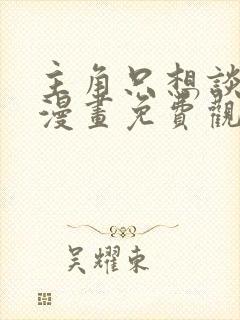 主角只想談
漫畫免費觀
吴耀東